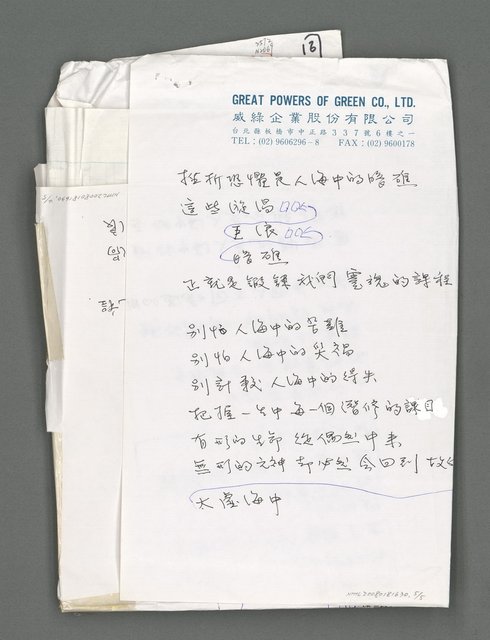 GREAT POWERS OF GREEN CO., LTD.
威綠企業股份有限公司
台北縣板橋市中正路337號6樓之一
TEL：(02) 9606296－8 FAX：(02) 9600178
挫折恐懼是人海中的暗礁
這些漩渦
巨浪
暗礁
正就是鍛鍊我們靈魂的課程
別怕人海中的苦難
別怕人海中的災禍
別計較人海中的得失
把握一生中每一個潛修的課目
有形的生命從偶然中來
無形的元神却必然會回到故
太虛海中
NMTL20080181690, 5/8